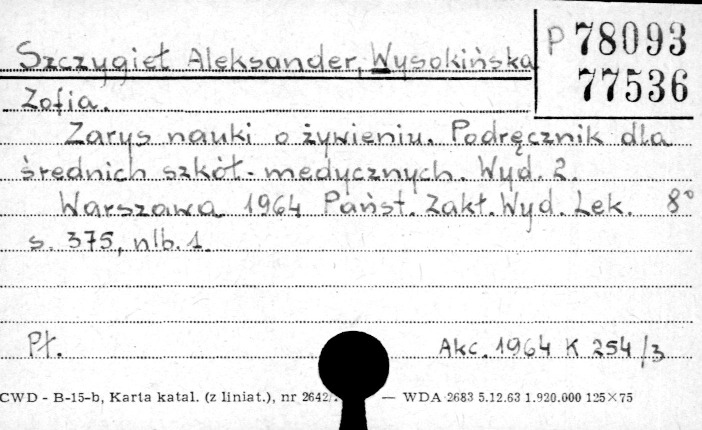 P 78093
77536
Szczygieł Aleksander, Wysokińska
Zofia.
Zarys nauki o żywieniu. Podręcznik dla
średnich szkół. medycznych. Wyd. 2.
Warszawa 1964 Państ. Zakł. Wyd. Lek. 8°
s. 375, nlb. 1.
Pł. Akc. 1964 K 254/3
CWD - B-15-b, Karta katal. (z liniat.), nr 2642/ — WDA 2683 5.12.63 1.920.000 125×75